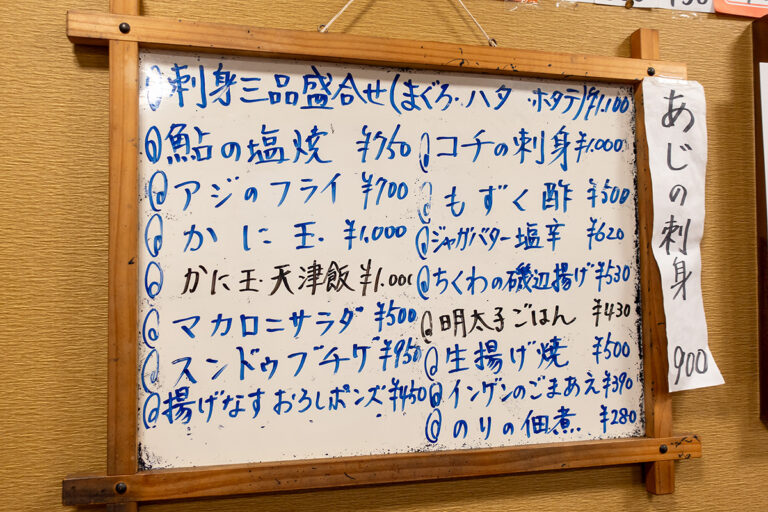 刺身三品盛合せ(まぐろ・ハタ ホタテ)¥1.100
鮎の塩焼 ¥750
アジのフライ ¥700
かに玉. ¥1.000
かに玉・天津飯 ¥1.000
マカロニサラダ ¥500
スンドゥブチゲ ¥950
揚げなすおろしポンズ ¥450
コチの刺身 ¥1.000
もずく酢 ¥500
ジャガバター塩辛 ¥620
ちくわの磯辺揚げ ¥530
明太子ごはん ¥430
生揚げ焼 ¥500
インゲンのごまあえ ¥390
のりの佃煮. ¥280
あじの刺身 900